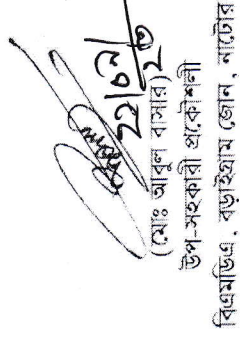 ২২|০২|২
(মোঃ আবুল বাসার)
উপ-সহকারী প্রকৌশলী
বিএমডিএ, বড়াইগ্রাম জোন, নাটোর